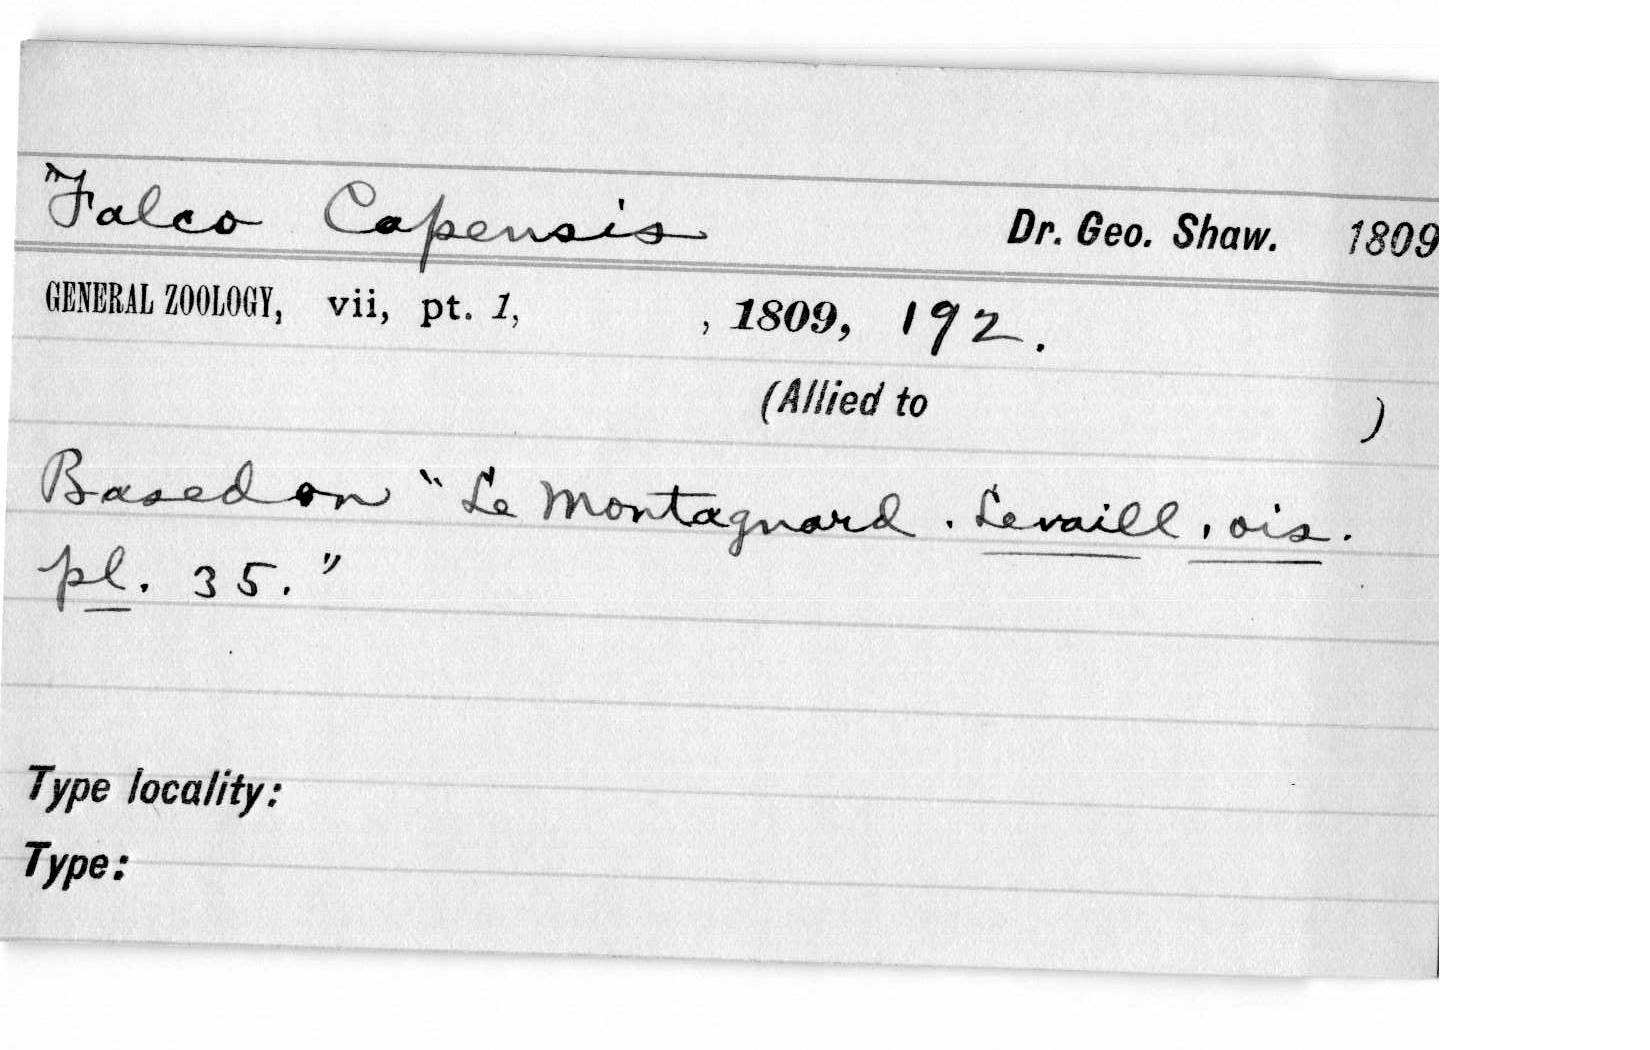 Falco Capensis Dr. Geo. Shaw. 1809
GENERAL ZOOLOGY, vii, pt. 1, , 1809, 192.
(Allied to )
Based on "Le Montagnard. Levaill, ois.
pl. 35."
Type locality:
Type: